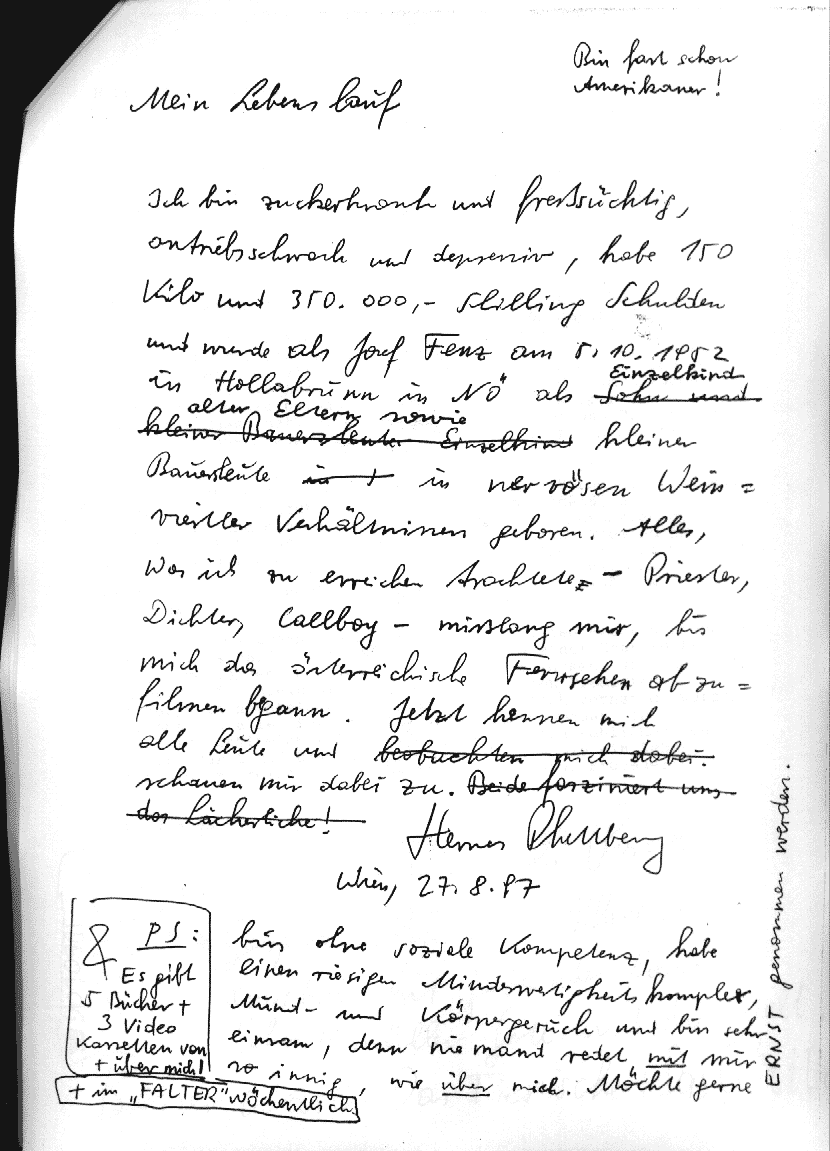 Bin fast schon
Amerikaner!
Mein Lebenslauf
Ich bin zuckerkrank und freßsüchtig,
antriebsschwach und depressiv, habe 150
Kilo und 350.000,- Schilling Schulden
und wurde als Josef Fenz am 5.10.1952
Einzelkind
in Hollabrunn in NÖ als Sohn und
alter Eltern sowie
kleiner Bauersleute Einzelkind kleiner
Bauersleute in + in nervösen Wein=
viertler Verhältnissen geboren. Alles,
was ich zu erreichen trachtete, - Priester,
Dichter, Callboy - misslang mir, bis
mich das österreichische Fernsehen abzu=
filmen begann. Jetzt kennen mich
alle Leute und beobachten mich dabei.
schauen mir dabei zu. Beide fasziniert uns
das Lächerliche!
Hermes Phettberg
Wien, 27.8.97
PS:
& Es gibt
5 Bücher +
3 Video
Kassetten von
+ über mich!
+ im „FALTER" wöchentlich
bin ohne soziale Kompetenz, habe
einen riesigen Minderwertigkeitskomplex,
Mund- und Körpergeruch und bin sehr
einsam, denn niemand redet mit mir
so innig, wie über mich. Möchte gerne
ERNST genommen werden.